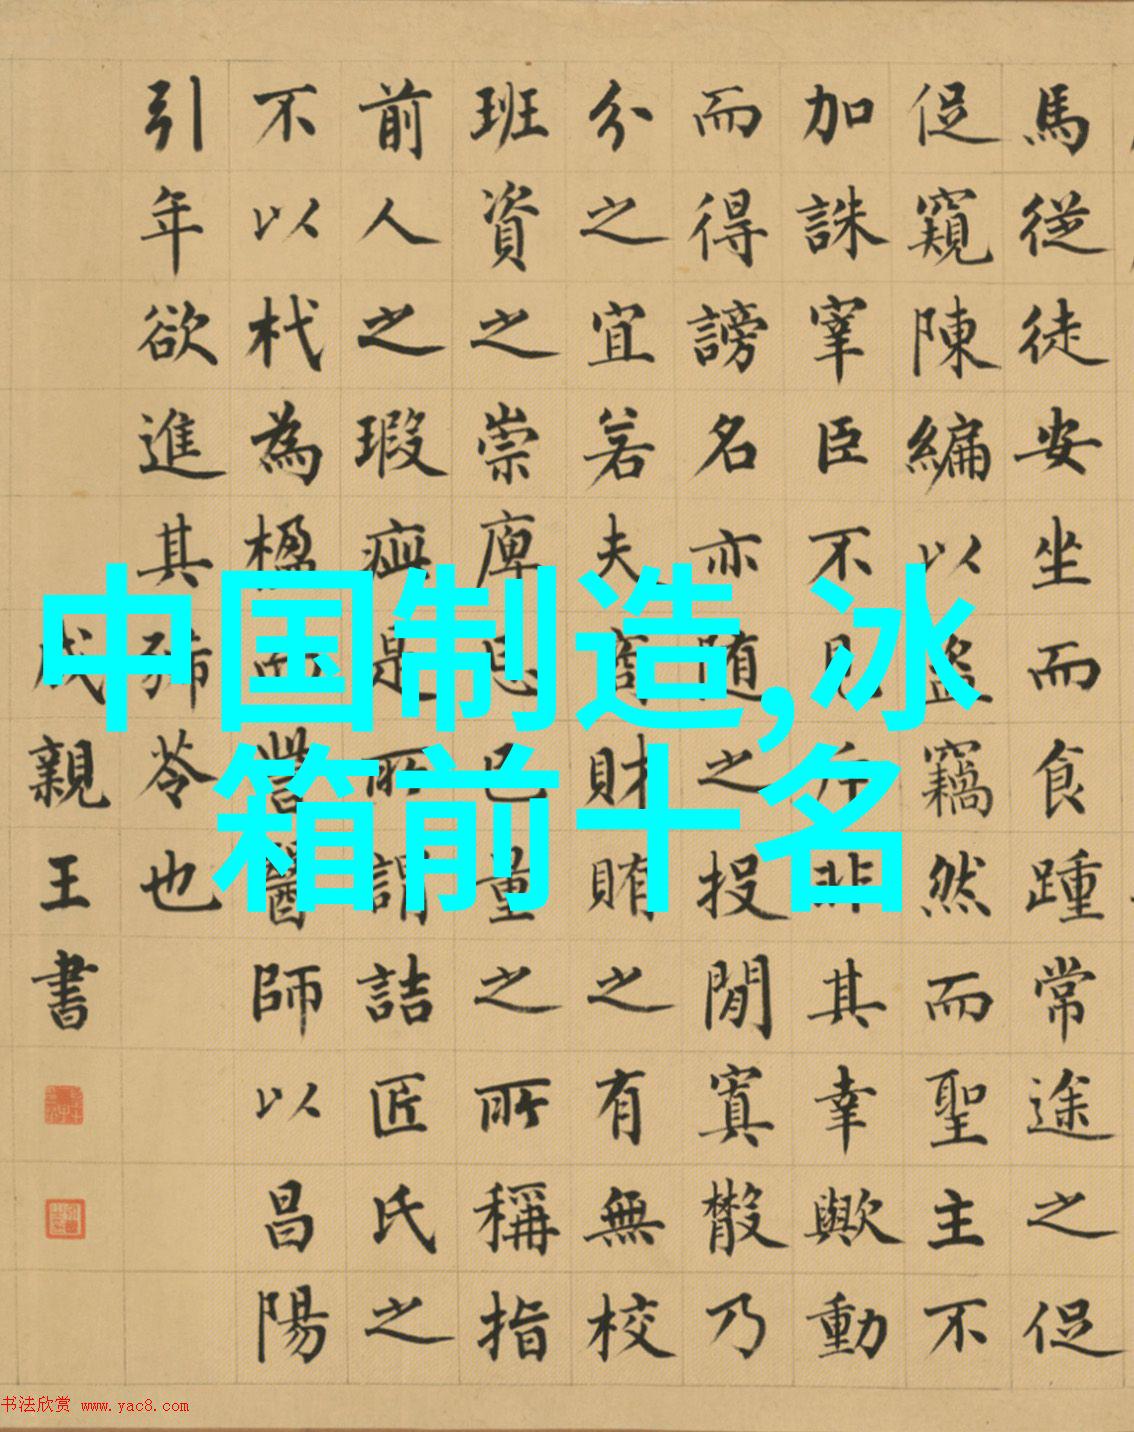 馬從徒安坐而食踵常途之促
促窺陳編以盜竊然而聖主不
加誅宰臣不見斥非其幸歟動
而得謗名亦随之投閒寘散乃
分之宜若夫商財賄之有無校
班資之崇庳忘己量之所稱指
前人之瑕疵是所謂詰匠氏之
不以杙為楹而訾醫師以昌陽
引年欲進其豨苓也
成親王書
中国制造,冰
箱前十名
书法欣赏 www.yac8.com